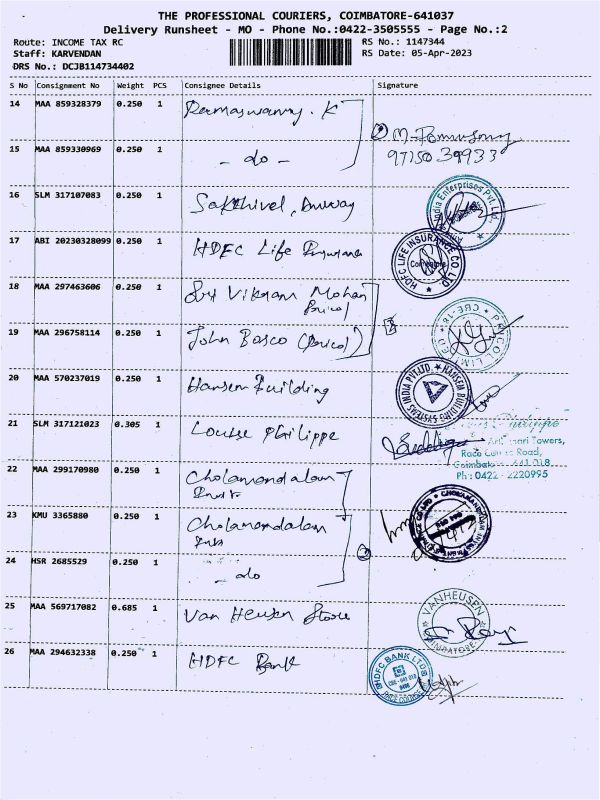 THE PROFESSIONAL COURIERS, COIMBATORE-641037
Delivery Runsheet - MO - Phone No.:0422-3505555 - Page No.:2
Route: INCOME TAX RC
RS No.: 1147344
Staff: KARVENDAN
RS Date: 05-Apr-2023
DRS No.: DCJB114734402
S No Consignment No Weight PCS Consignee Details Signature
14 MAA 859328379 0.250 1 Ramaswamy. K
15 MAA 859330969 0.250 1 - do -
97150 39933
16 SLM 317107083 0.250 1 Sakthivel,
India Enterprises Pvt. Ltd.
17 ABI 20230328099 0.250 1 HDFC Life Insurance
HDFC LIFE INSURANCE CO LTD
Coimbatore
18 MAA 297463606 0.250 1 Vikram Mohan
(Pricol)
19 MAA 296758114 0.250 1 John Bosco (Pricol)
PRICOL LIMITED CBE-18
20 MAA 570237019 0.250 1 Hansen Building
HANSEN BUILDING SYSTEMS INDIA PVT.LTD.
21 SLM 317121023 0.305 1 Louise Philippe
Towers,
Race Course Road,
Coimbatore - 641 018
Ph: 0422 - 2220995
22 MAA 299170980 0.250 1 Cholamandalam
23 KMU 3365880 0.250 1 Cholamandalam
CHOLAMANDALAM
24 HSR 2685529 0.250 1 - do
25 MAA 569717082 0.685 1 Van Heusen Store
VANHEUSEN
COIMBATORE
26 MAA 294632338 0.250 1 HDFC Bank
HDFC BANK LTD
CBE - 641 018
RACE COURSE